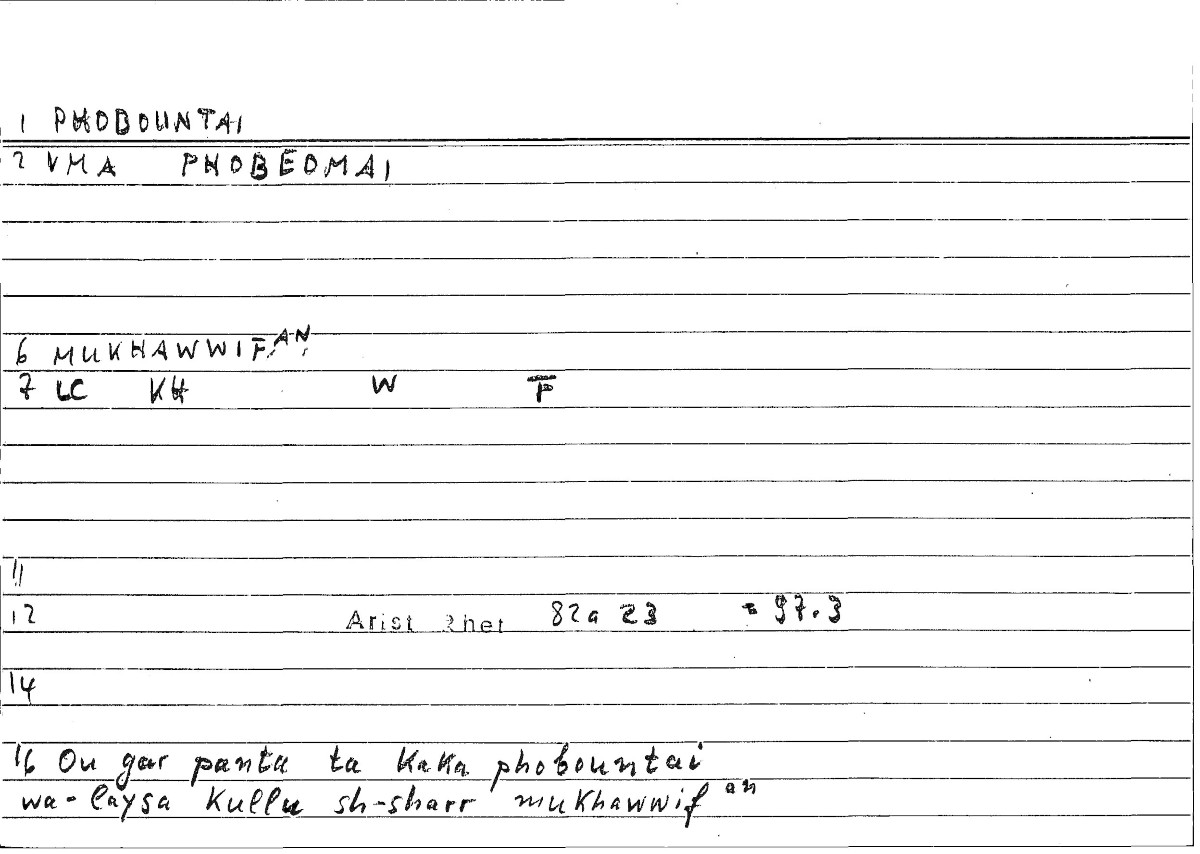 1 PHOBOUNTAI
2 VMA PHOBEOMAI
6 MUKHAWWIF, AN,
7 LC KH W F
11
12 Arist Rhet 82a 23 = 97.3
14
16 Ou gar panta ta kaka phobountai
wa-laysa kullu sh-sharr mukhawwif an